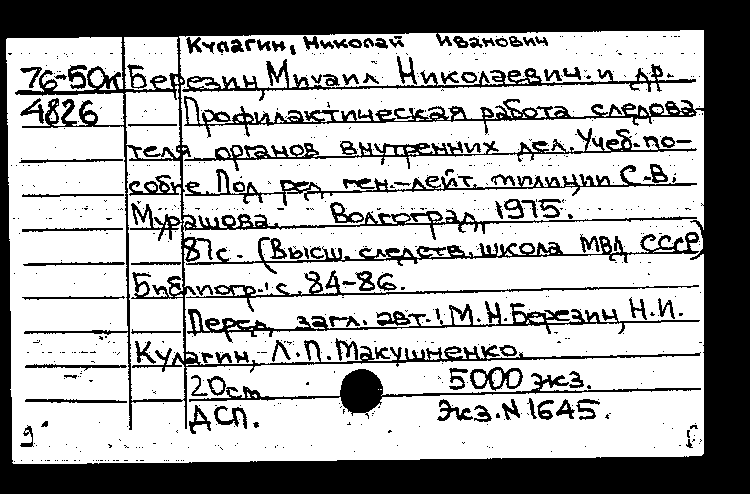 Кулагин, Николай Иванович
76-50к Березин, Михаил Николаевич. и др.
4826 Профилактическая работа следова-
теля органов внутренних дел. Учеб. по-
собие. Под ред. ген.-лейт. милиции С.В.
Мурашова. Волгоград, 1975.
87с. (Высш. следств. школа МВД СССР)
Библиогр.: с. 84-86.
Перед загл. авт.: М.Н. Березин, Н.И.
Кулагин, Л.П. Макушненко.
20см. 5000 экз.
ДСП. Экз. N 1645.